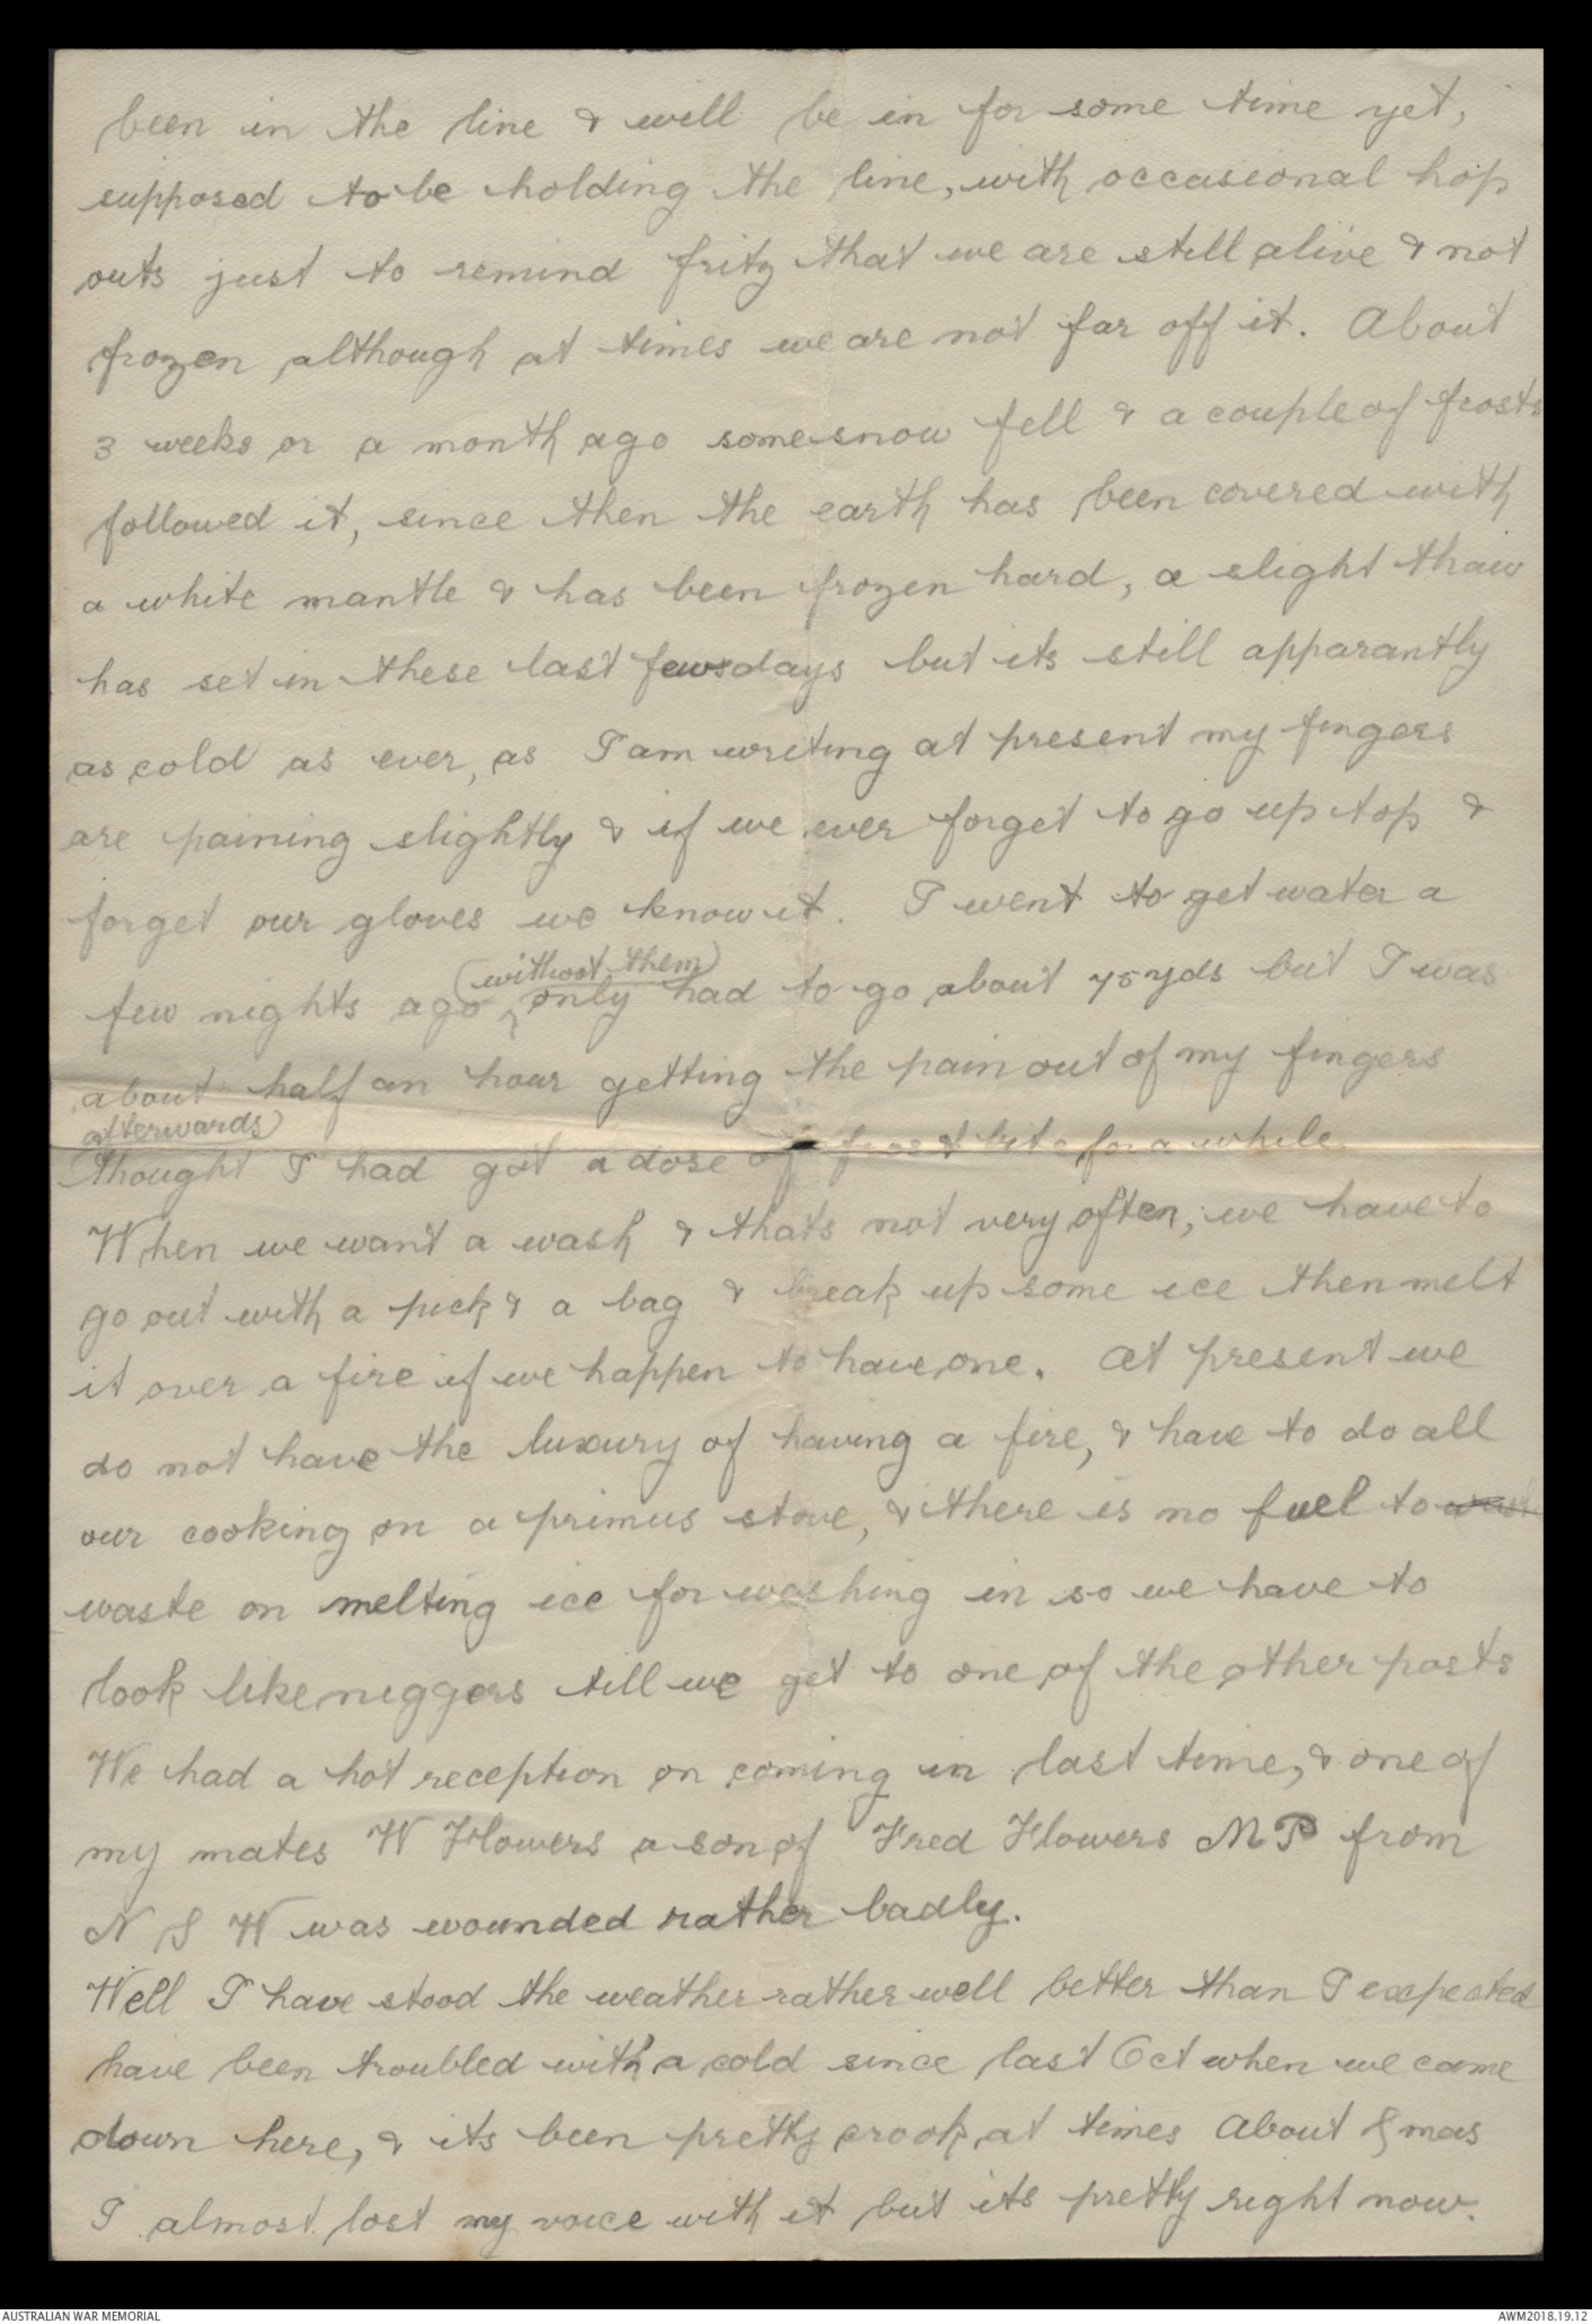 been in the line & will be in for some time yet,
supposed to be holding the line, with occasional hop
outs just to remind fritz that we are still alive & not
frozen although at times we are not far off it. About
3 weeks or a month ago some snow fell & a couple of frosts
followed it, since then the earth has been covered with
a white mantle & has been frozen hard, a slight thaw
has set in these last few days but its still apparantly
as cold as ever, as I am writing at present my fingers
are paining slightly & if we ever forget to go up top &
forget our gloves we know it. I went to get water a
(without them)
few nights ago ^ only had to go about 75 yds but I was
about half an hour getting the pain out of my fingers
afterwards)
thought I had got a dose of frost bite for a while.
When we want a wash & thats not very often, we have to
go out with a pick & a bag & break up some ice then melt
it over a fire if we happen to have one. At present we
do not have the luxury of having a fire, & have to do all
our cooking on a primus stove, & there is no fuel to
waste on melting ice for washing in so we have to
look like niggers till we get to one of the other posts
We had a hot reception on coming in last time, & one of
my mates W Flowers a son of Fred Flowers MP from
N S W was wounded rather badly.
Well I have stood the weather rather well better than I expected
have been troubled with a cold since last Oct when we came
down here, & its been pretty crook at times About Xmas
I almost lost my voice with it but its pretty right now.
AUSTRALIAN WAR MEMORIAL
AWM2018.19.12